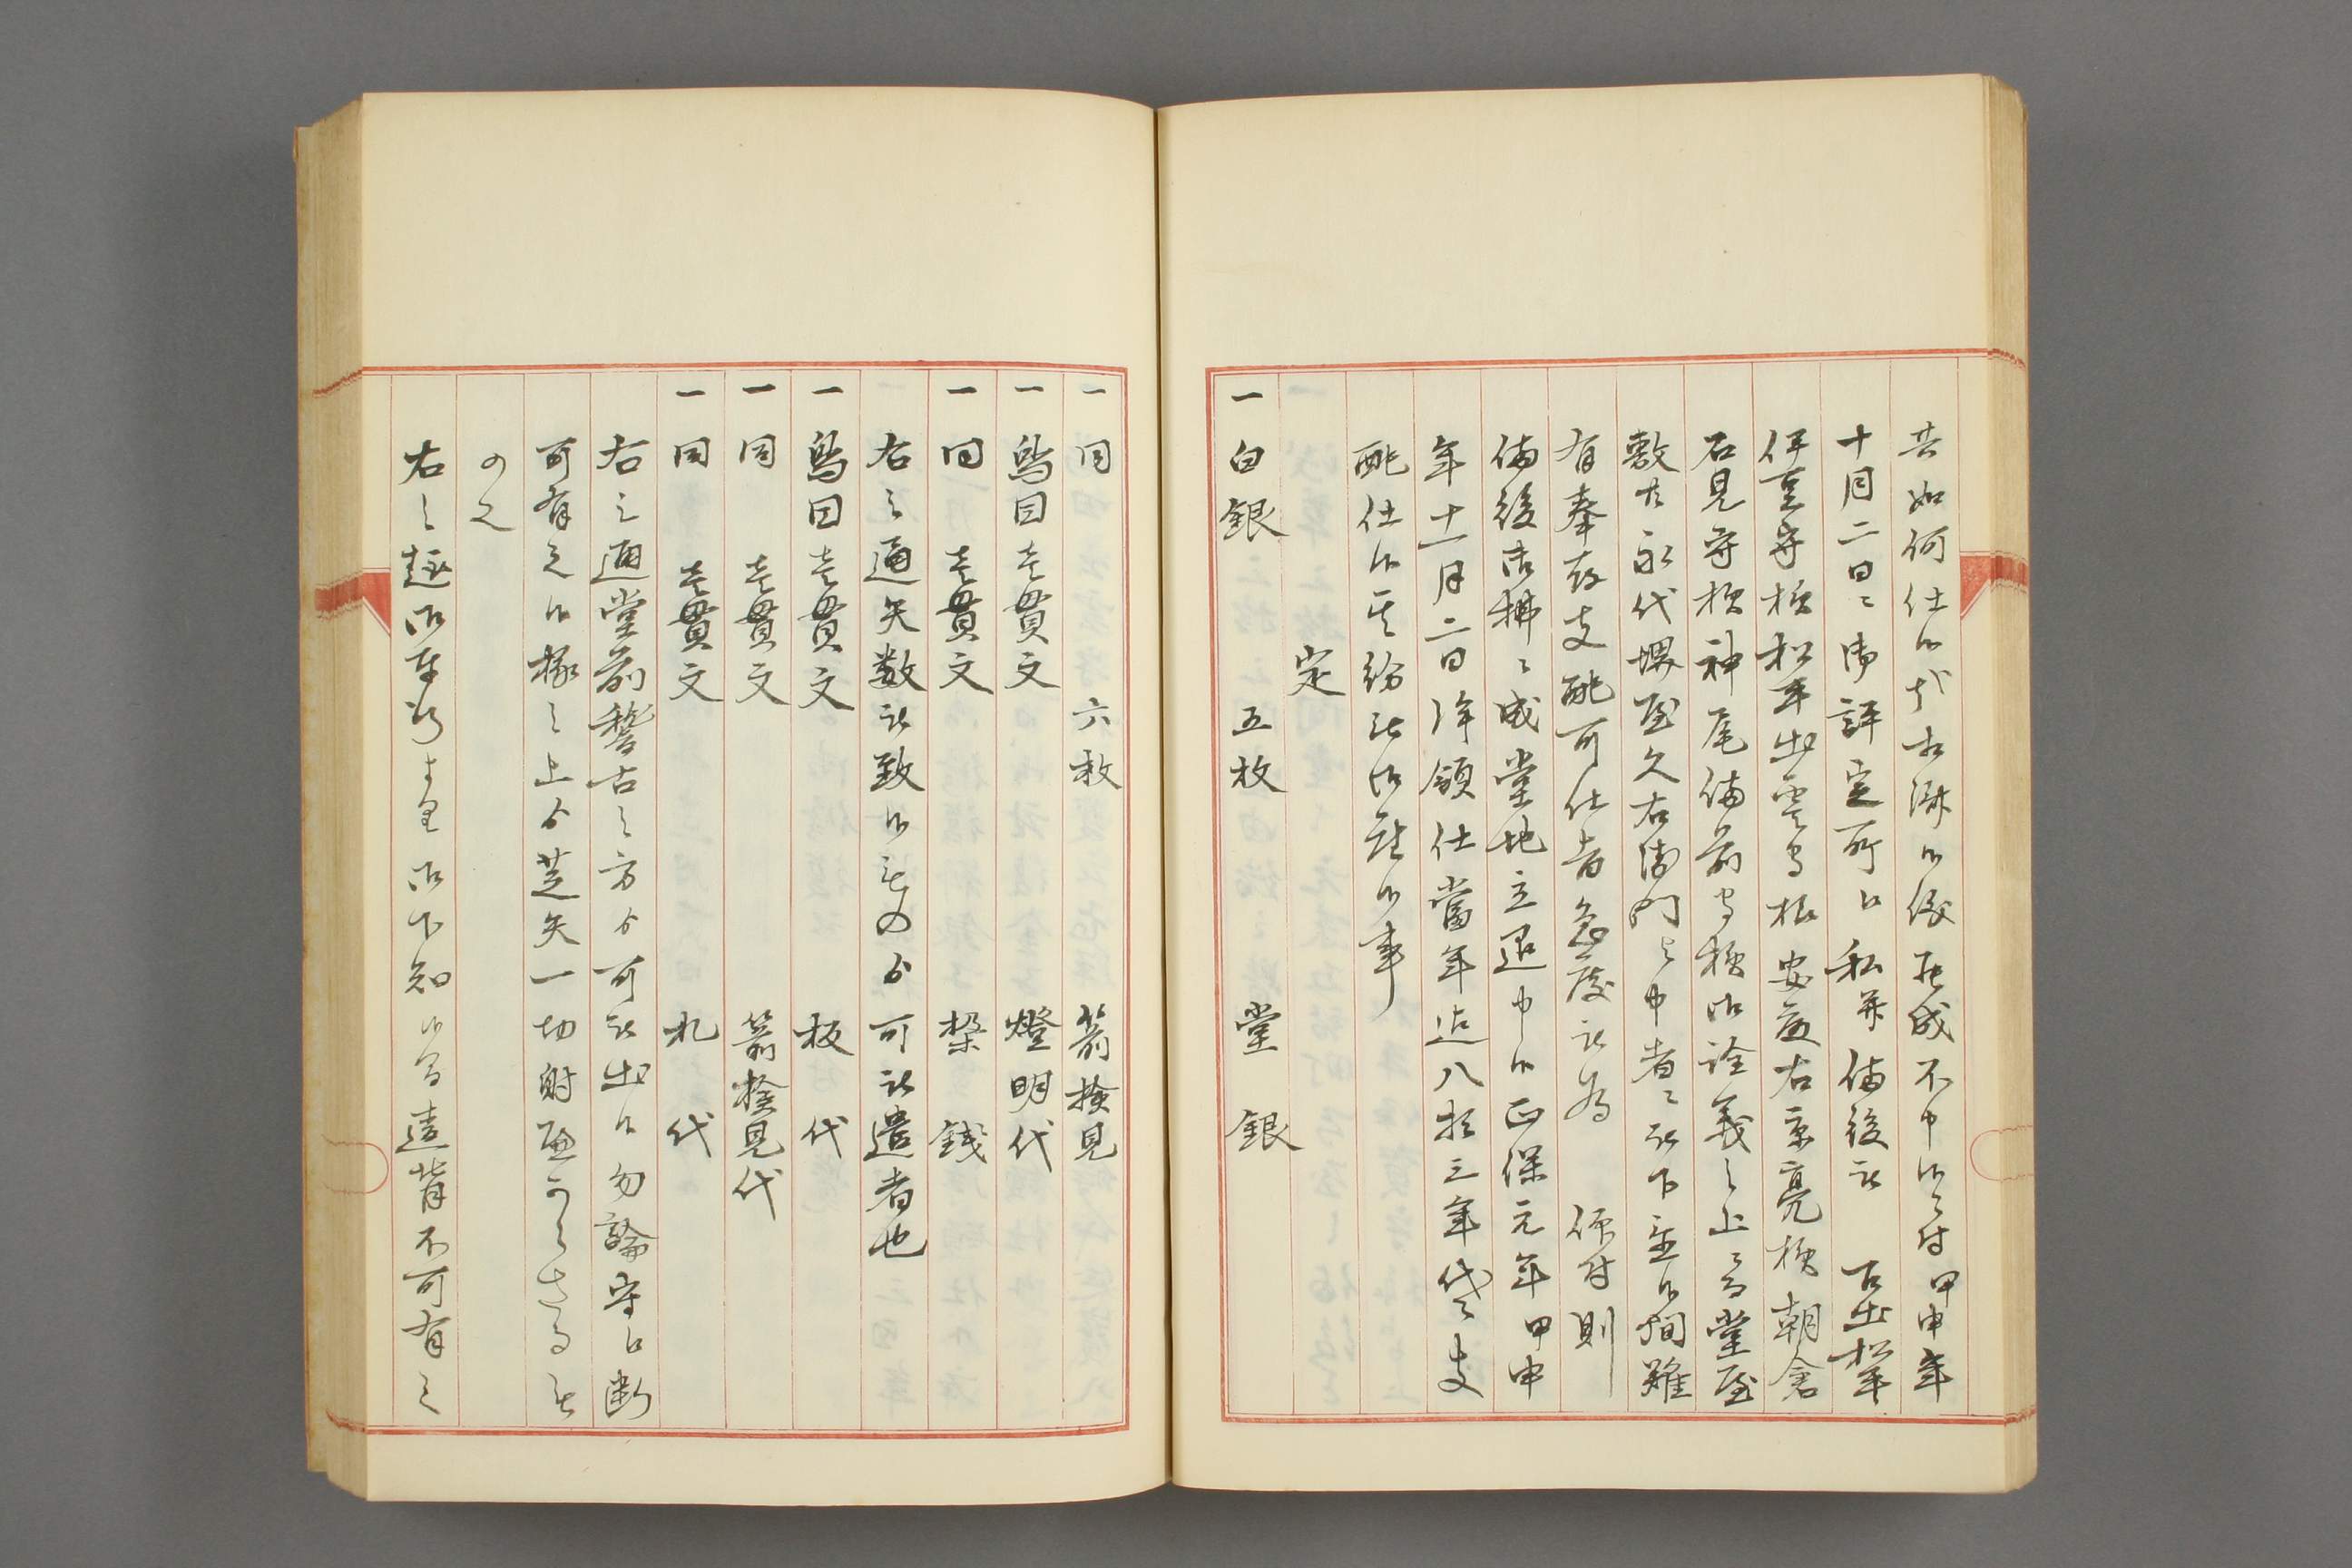 共如何仕候哉相済候儀罷成不申候ニ付甲申年
十月二日ニ御評定所江私并備後被 召出松平
伊豆守様松平出雲守様安藤右京亮様朝倉
石見守様神尾備前守様御詮義之上ニ而堂屋
敷共永代堺屋久右衛門与申者ニ被下置候間難
有奉存支配可仕旨急度被為 仰付則
備後御構ニ成堂地立退申候正保元年甲申
年十一月二日拝領仕當年迄八拾三年代々支
配仕候其紛無御座候事
定
一白銀 五枚 堂銀
一同 六枚 箭検見
一鳥目壱貫文 燈明代
一同 壱貫文 楾銭
右之通矢数被致候もの可被遣者也
一鳥目壱貫文 板代
一同 壱貫文 箭検見代
一同 壱貫文 札代
右之通堂前稽古之方可被出候勿論守江断
可有之候掾之上芝矢一切射
右之趣御奉行より御下知候而違背不可有之